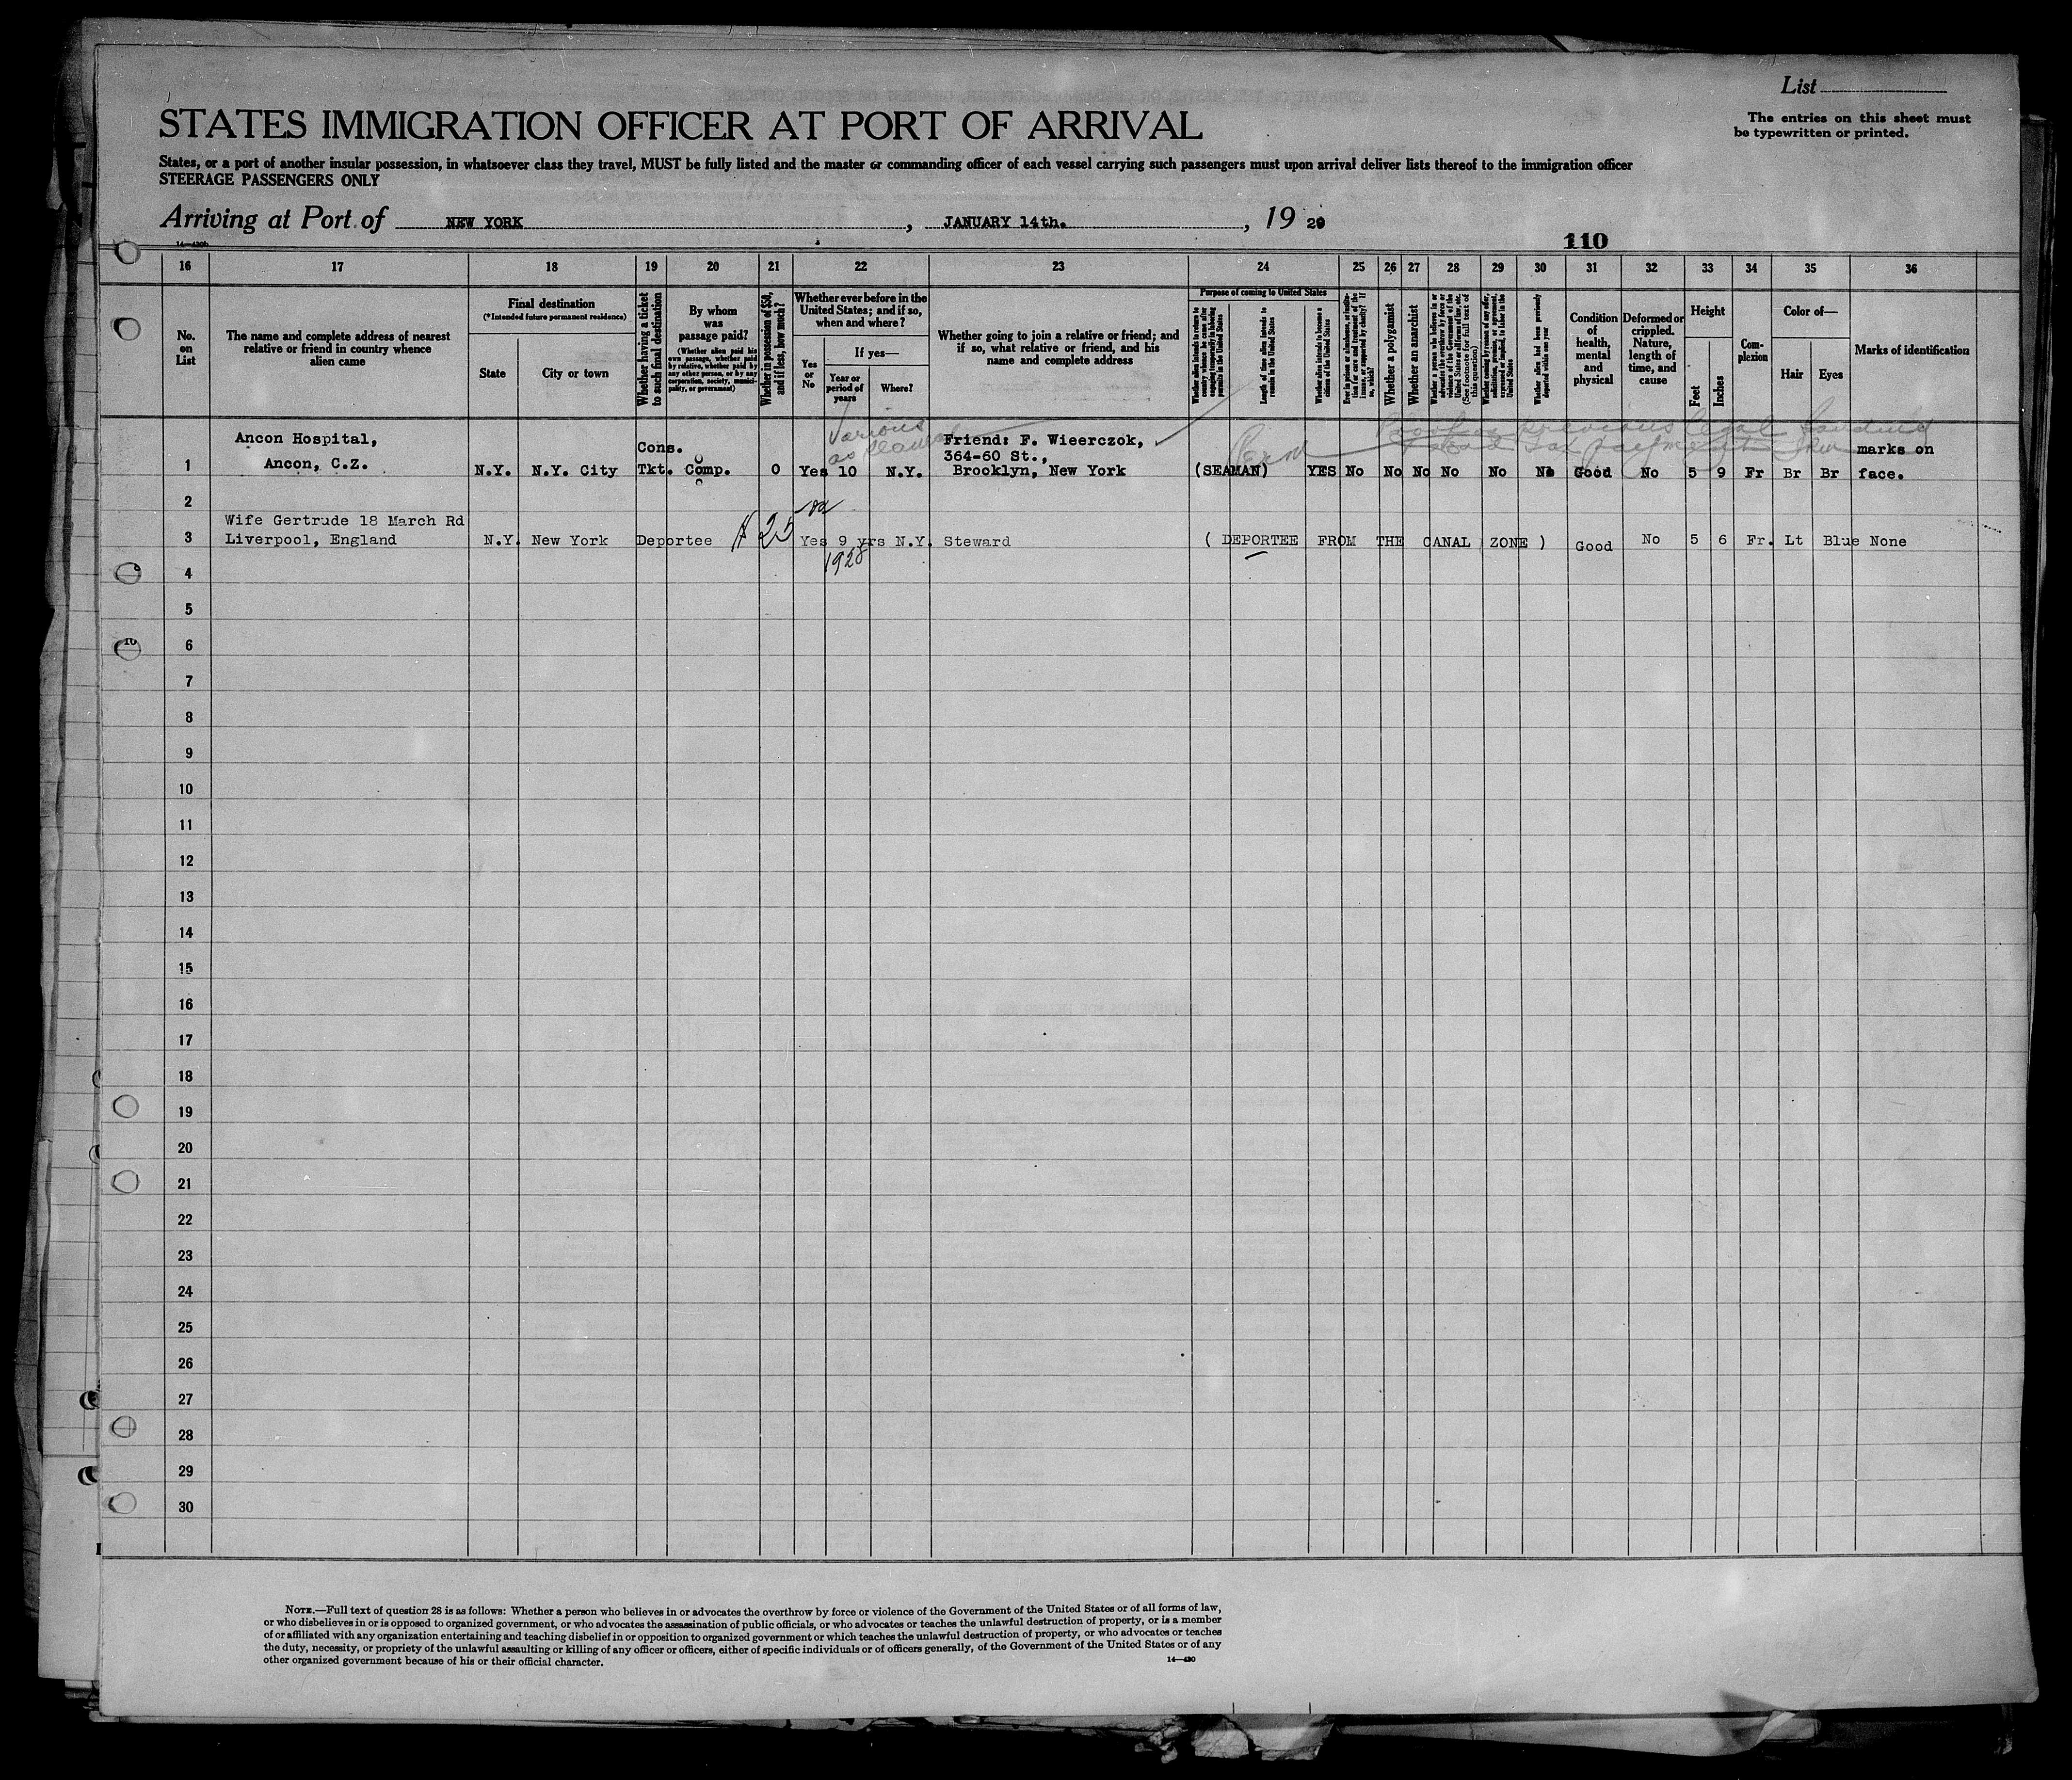 List
The entries on this sheet must
be typewritten or printed.
STATES IMMIGRATION OFFICER AT PORT OF ARRIVAL
States, or a port of another insular possession, in whatsoever class they travel, MUST be fully listed and the master or commanding officer of each vessel carrying such passengers must upon arrival deliver lists thereof to the immigration officer
STEERAGE PASSENGERS ONLY
Arriving at Port of NEW YORK , JANUARY 14th. , 19 29
14—430b
110
16 17 18 19 20 21 22 23 24 25 26 27 28 29 30 31 32 33 34 35 36
No. on List
The name and complete address of nearest relative or friend in country whence alien came
Final destination
(*Intended future permanent residence)
State
City or town
Whether having a ticket to such final destination
By whom was passage paid?
(Whether alien paid his own passage, whether paid by relative, whether paid by any other person, or by any corporation, society, municipality, or government)
Whether in possession of $50, and if less, how much?
Whether ever before in the United States; and if so, when and where?
Yes or No
If yes—
Year or period of years
Where?
Whether going to join a relative or friend; and if so, what relative or friend, and his name and complete address
Purpose of coming to United States
Whether alien intends to return to country whence he came after engaging temporarily in laboring pursuits in the United States
Length of time alien intends to remain in the United States
Whether alien intends to become a citizen of the United States
Ever in prison or almshouse, or institution for care and treatment of the insane, or supported by charity? If so, which?
Whether a polygamist
Whether an anarchist
Whether a person who believes in or advocates the overthrow by force or violence of the Government of the United States or all forms of law, etc. (See footnote for full text of this question)
Whether coming by reason of any offer, solicitation, promise, or agreement, expressed or implied, to labor in the United States
Whether alien had been previously deported within one year
Condition of health, mental and physical
Deformed or crippled. Nature, length of time, and cause
Height
Feet
Inches
Complexion
Color of—
Hair
Eyes
Marks of identification
Various
as seaman
previous legal landing
Ancon Hospital,
Cons.
Friend: F. Wieerczok,
364-60 St.,
marks on
1 Ancon, C.Z. N.Y. N.Y. City Tkt. Comp. 0 Yes 10 N.Y. Brooklyn, New York (SEAMAN) YES No No No No No No Good No 5 9 Fr Br Br face.
2
Wife Gertrude 18 March Rd
3 Liverpool, England N.Y. New York Deportee $25 Yes 9 yrs N.Y. Steward ( DEPORTEE FROM THE CANAL ZONE ) Good No 5 6 Fr. Lt Blue None
1928
4
5
6
7
8
9
10
11
12
13
14
15
16
17
18
19
20
21
22
23
24
25
26
27
28
29
30
NOTE.—Full text of question 28 is as follows: Whether a person who believes in or advocates the overthrow by force or violence of the Government of the United States or of all forms of law,
or who disbelieves in or is opposed to organized government, or who advocates the assassination of public officials, or who advocates or teaches the unlawful destruction of property, or is a member
of or affiliated with any organization entertaining and teaching disbelief in or opposition to organized government or which teaches the unlawful destruction of property, or who advocates or teaches
the duty, necessity, or propriety of the unlawful assaulting or killing of any officer or officers, either of specific individuals or of officers generally, of the Government of the United States or of any
other organized government because of his or their official character.
14—430